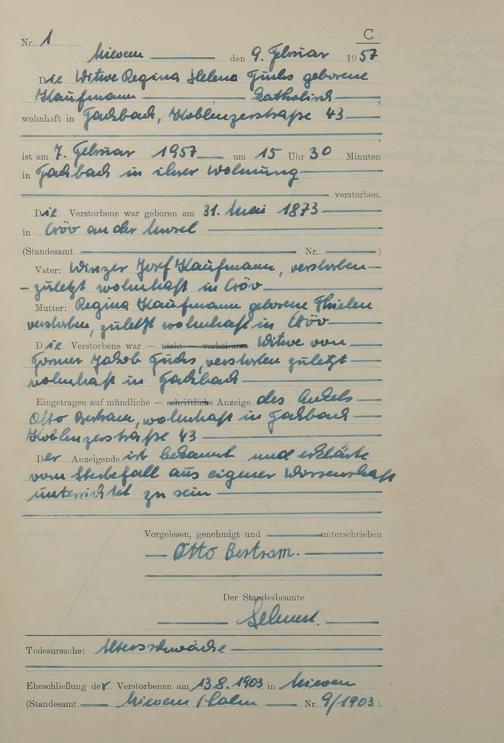 C
Nr. 1
Nievern den 9. Februar 1957
Die Witwe Regina Helena Fuchs geborene
Kaufmann Katholisch
wohnhaft in Fachbach, Koblenzerstraße 43
ist am 7. Februar 1957 um 15 Uhr 30 Minuten
in Fachbach in ihrer Wohnung
verstorben.
Die Verstorbene war geboren am 31. Mai 1873
in Cröv an der Mosel
(Standesamt Nr. )
Vater: Winzer Josef Kaufmann, verstorben
zuletzt wohnhaft in Cröv
Mutter: Regina Kaufmann geborene Thielen
verstorben, zuletzt wohnhaft in Cröv
Die Verstorbene war — nicht — verheiratet Witwe von
Former Jakob Fuchs, verstorben zuletzt
wohnhaft in Fachbach
Eingetragen auf mündliche — schriftliche Anzeige des Enkels
Otto Bertram, wohnhaft in Fachbach
Koblenzerstraße 43
Der Anzeigende ist bekannt und erklärte
vom Sterbefall aus eigener Wissenschaft
unterrichtet zu sein
Vorgelesen, genehmigt und unterschrieben
Otto Bertram.
Der Standesbeamte
Todesursache: Altersschwäche
Eheschließung der Verstorbenen am 13.8.1903 in Nievern
(Standesamt Nievern /Lahn Nr. 9/1903).